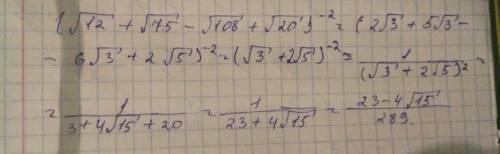 (√12 + √75 - √108 + √20)⁻² = (2√3 + 5√3 -
- 6√3 + 2√5)⁻² = (√3 + 2√5)⁻² = 1/(√3 + 2√5)² =
= 1/(3 + 4√15 + 20) = 1/(23 + 4√15) = (23 - 4√15)/289.